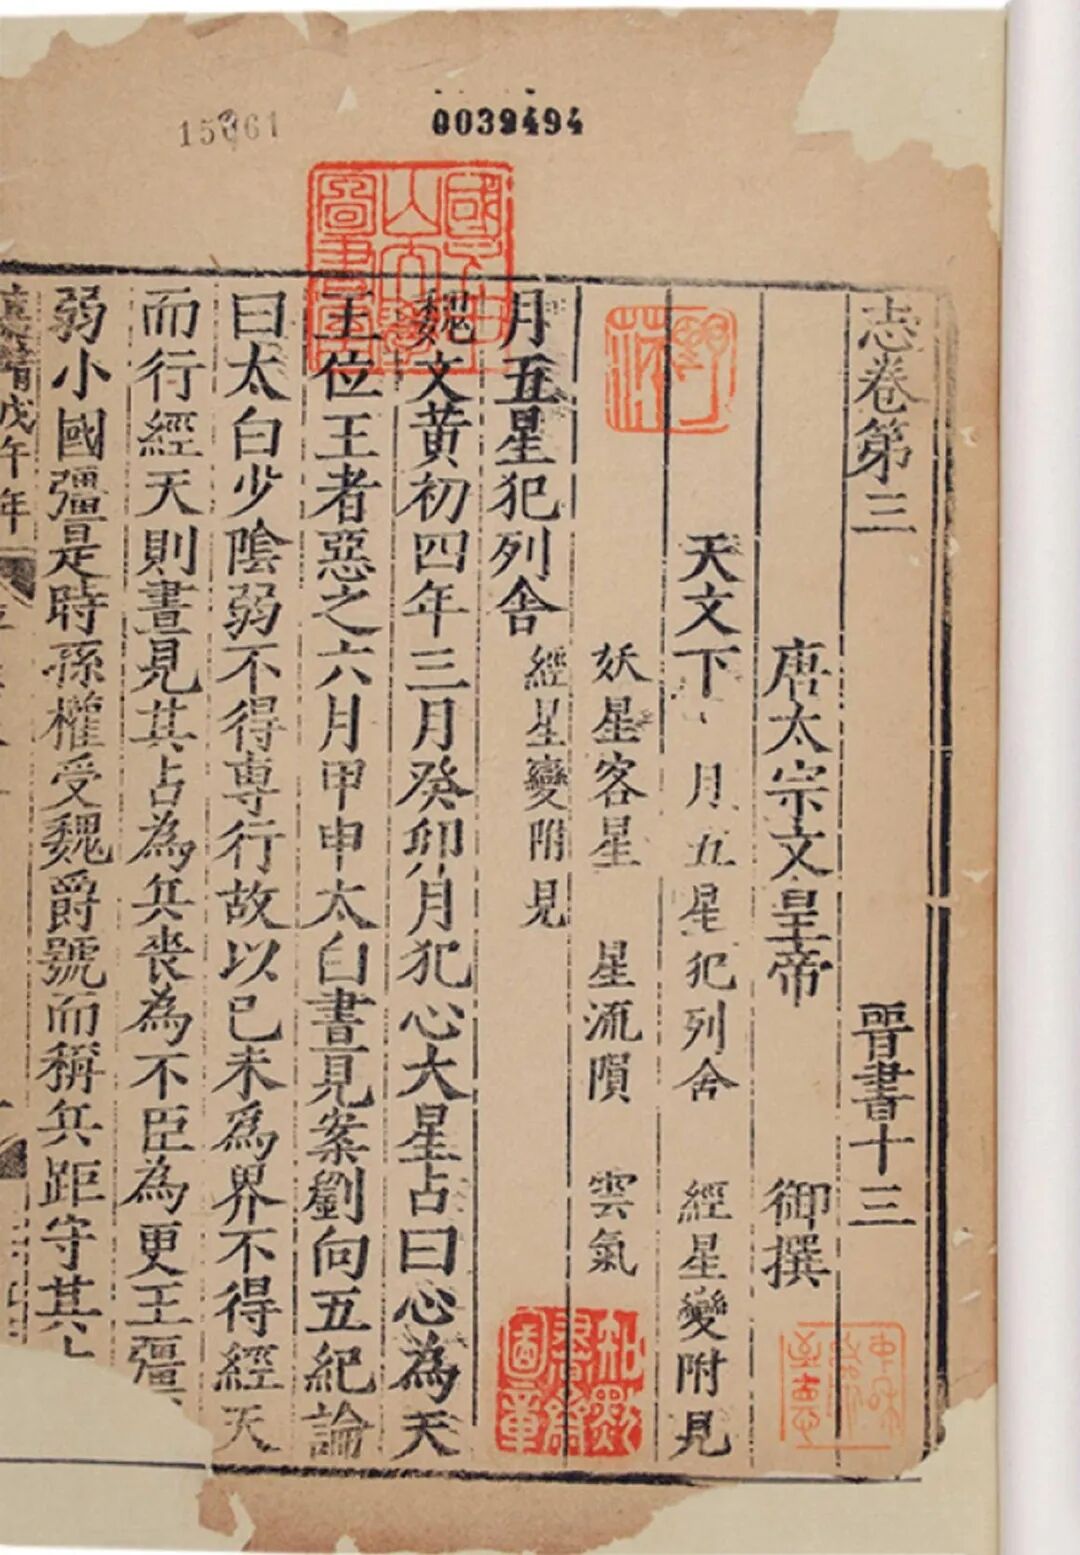 15361
0039494
志卷第三 晉書十三
唐太宗文皇帝 御撰
天文下 月五星犯列舍 經星變附見
妖星客星 星流隕 雲氣
月五星犯列舍 經星變附見
魏文黃初四年三月癸卯月犯心大星占曰心為天
王位王者惡之六月甲申太白晝見案劉向五紀論
曰太白少陰弱不得專行故以巳未為界不得經天
而行經天則晝見其占為兵喪為不臣為更王彊
弱小國彊是時孫權受魏爵號而稱兵距守其
戊午年